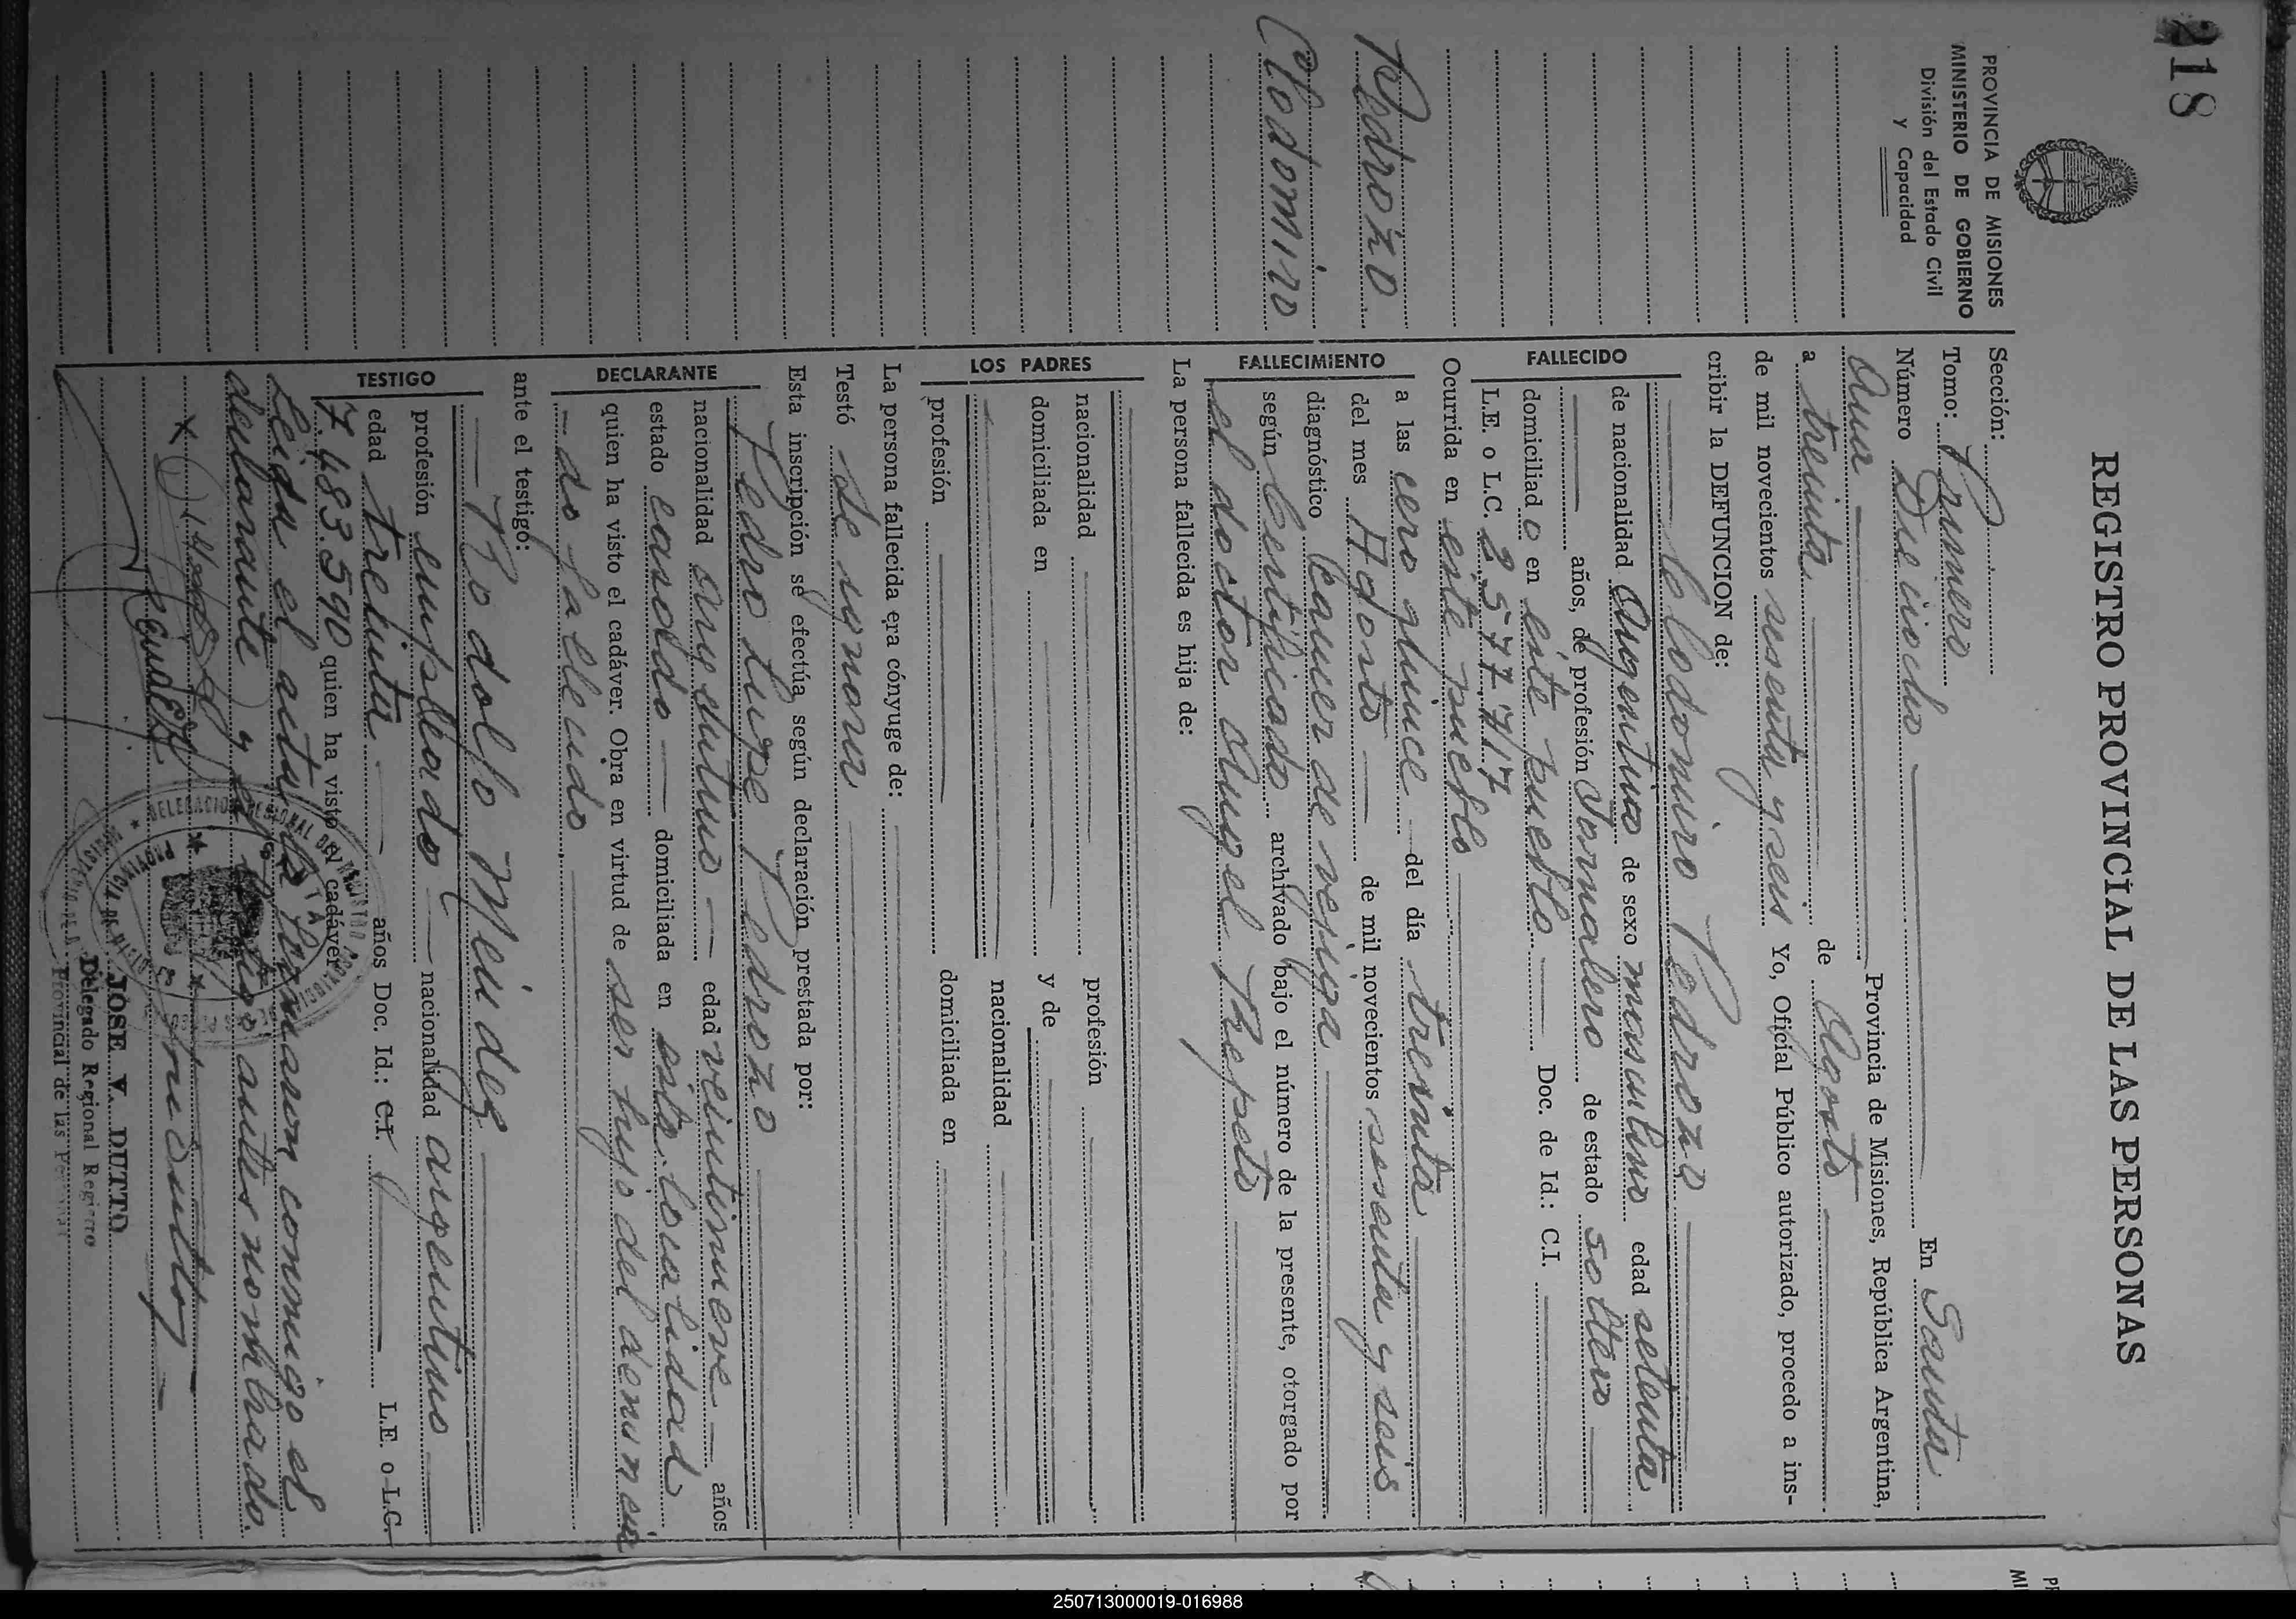 218
PROVINCIA DE MISIONES
MINISTERIO DE GOBIERNO
División del Estado Civil
y Capacidad
Pedrozo
Clodomiro
REGISTRO PROVINCIAL DE LAS PERSONAS
Sección:
Tomo: Primero
Número Dieciocho En Santa
Ana Provincia de Misiones, República Argentina,
a treinta de Agosto
de mil novecientos sesenta y seis Yo, Oficial Público autorizado, procedo a ins-
cribir la DEFUNCION de:
FALLECIDO
Clodomiro Pedrozo
de nacionalidad Argentino de sexo masculino edad setenta
años, de profesión Jornalero de estado soltero
domiciliado en éste pueblo Doc. de Id.: C.I.
L.E. o L.C. 2.577.717
Ocurrida en éste pueblo
FALLECIMIENTO
a las cero quince del día treinta
del mes Agosto de mil novecientos sesenta y seis
diagnóstico Cancer de vejiga
según Certificado archivado bajo el número de la presente, otorgado por
el doctor Angel Repeto
La persona fallecida es hija de:
LOS PADRES
nacionalidad profesión
domiciliada en y de
nacionalidad
profesión domiciliada en
La persona fallecida era cónyuge de:
Testó Se ignora
Esta inscripción se efectúa según declaración prestada por:
DECLARANTE
Pedro Luise Pedrozo
nacionalidad argentino edad veintinueve años
estado casado domiciliada en esta localidad
quien ha visto el cadáver. Obra en virtud de ser hijo del denuncia
do fallecido
ante el testigo:
TESTIGO
Rodolfo Mendez
profesión empleado nacionalidad argentino
edad treinta años Doc. Id.: C.I. L.E. o L.C.
7.483.590 quien ha visto el cadáver
Leída el acta la firmaron conmigo el
declarante y el testigo antes nombrado.
JOSE V. DUTTO
Delegado Regional Registro
Provincial de las Personas
250713000019-016988